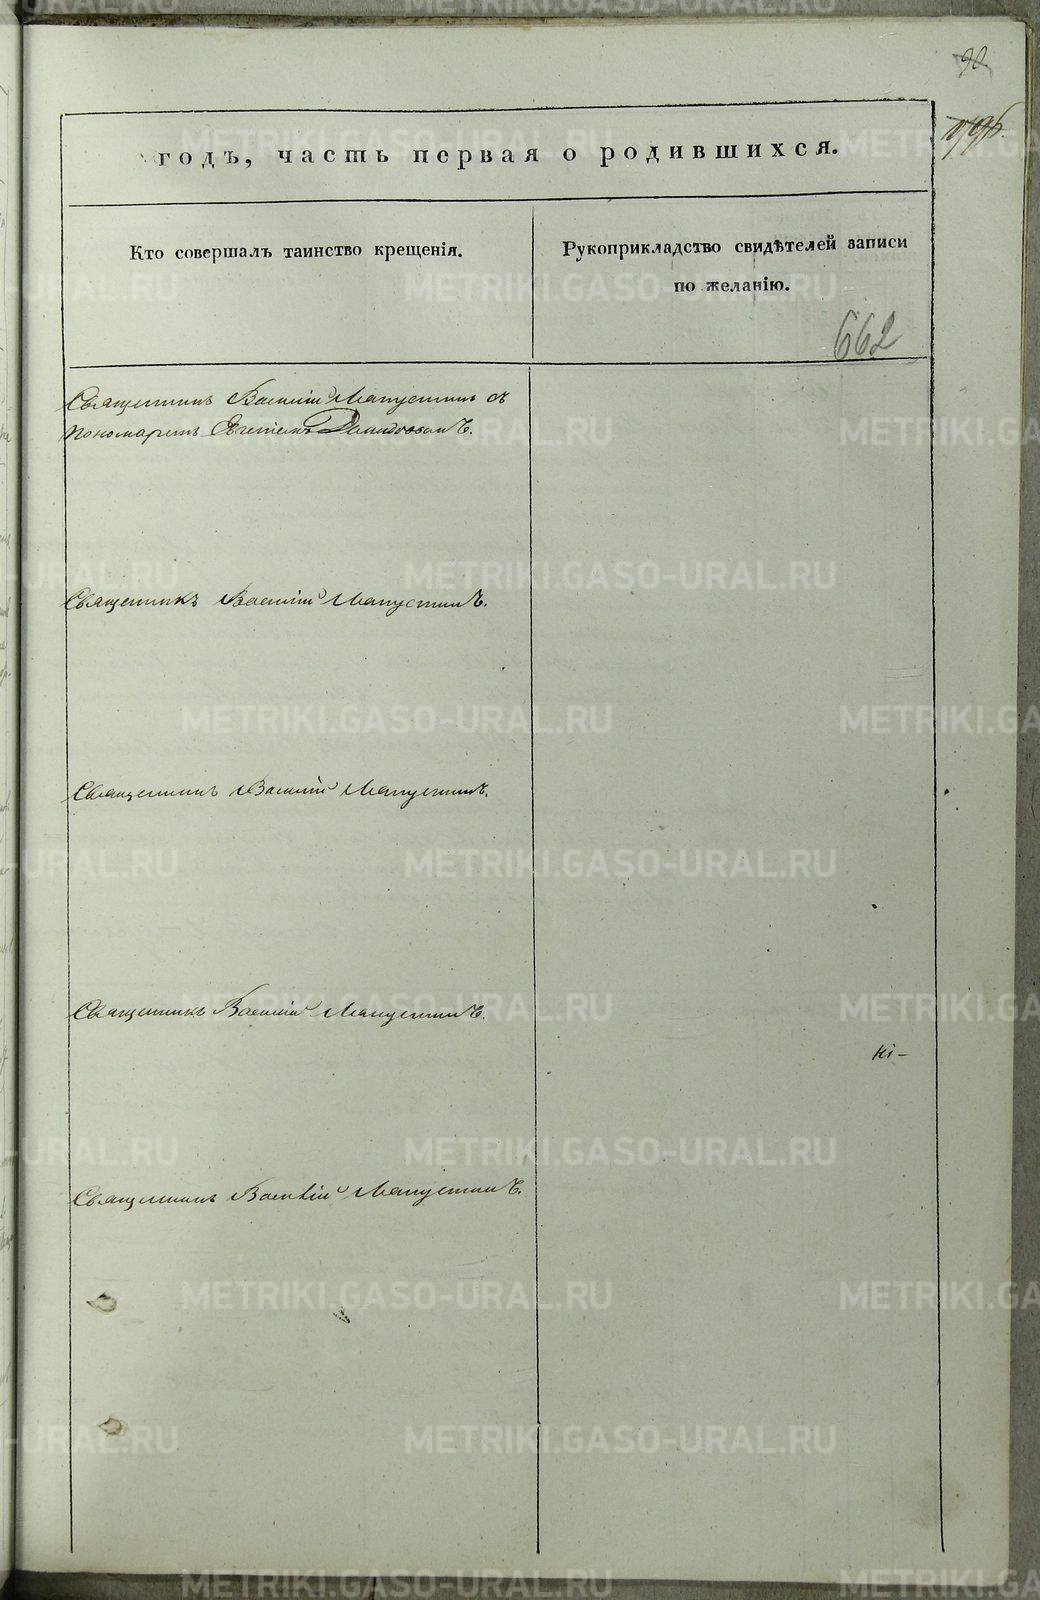 90.
662
годъ, часть первая о родившихся.
Кто совершалъ таинство крещенія.
Рукоприкладство свидѣтелей записи
по желанію.
Священникъ Василій Мапустинъ съ
пономаремъ Евгеніемъ
Священникъ Василій Мапустинъ.
Священникъ Василій Мапустинъ.
Священникъ Василій Мапустинъ.
кі-
Священникъ Василій Мапустинъ.
METRIKI.GASO-URAL.RU